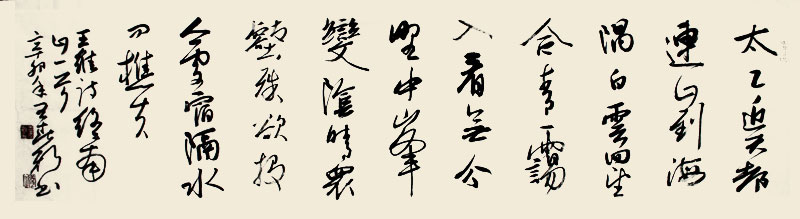 太乙近天都
連山到海
隅白雲回望
合青靄
入看無分
野中峯
變陰晴眾
壑殊欲投
人處宿隔水
问樵夫
王維詩終南
山一首
辛卯年王书